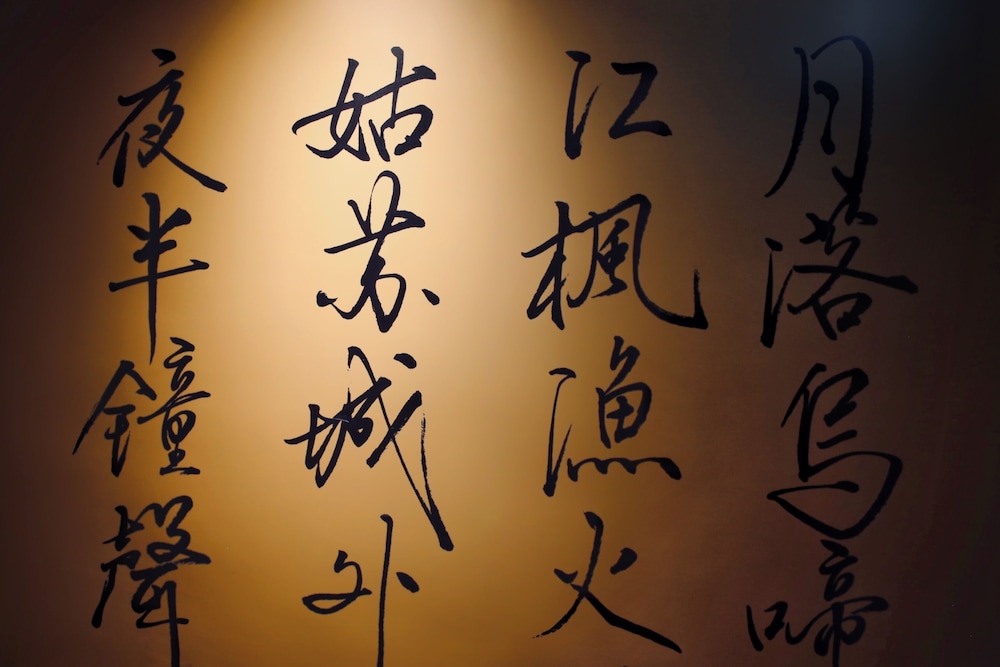 月落乌啼
江楓漁火
姑苏城外
夜半鐘聲